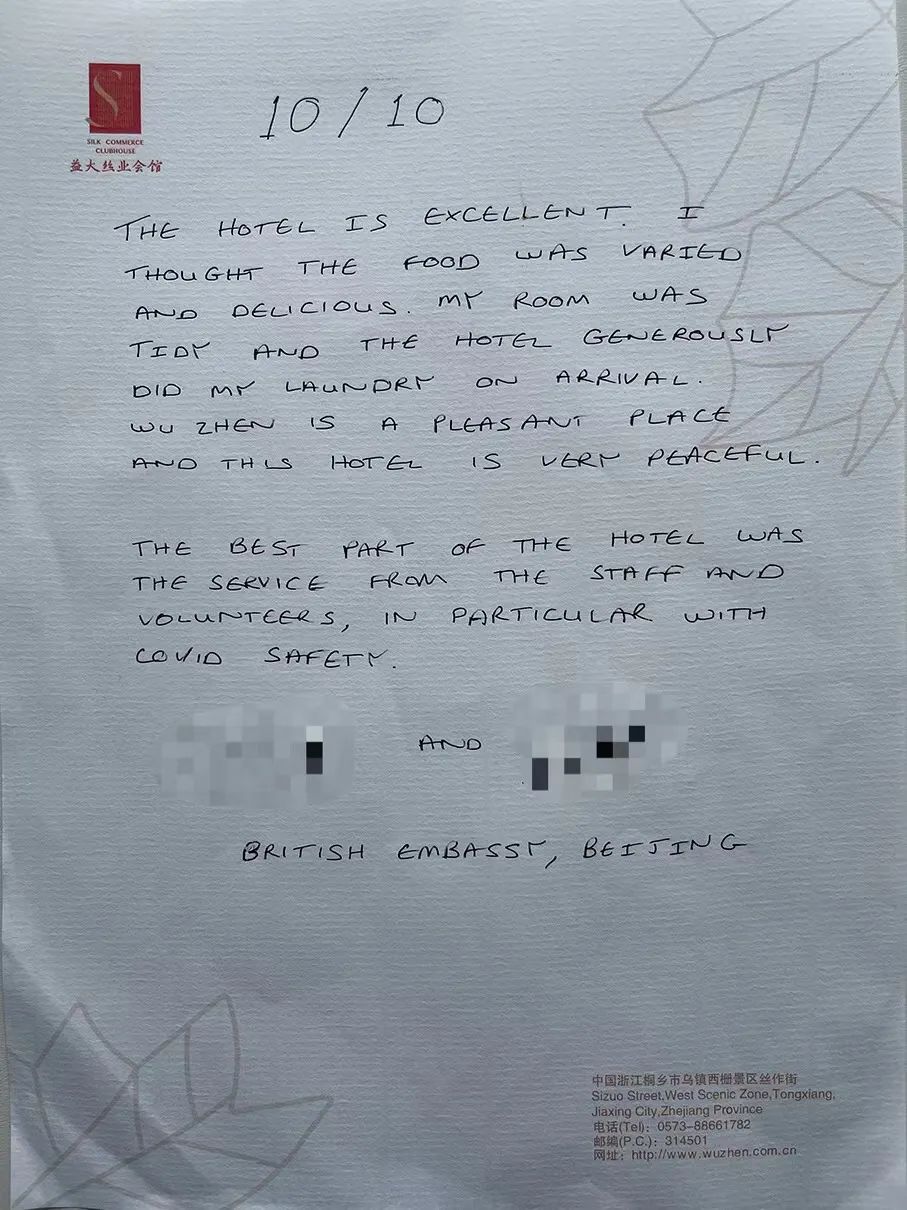 S
SILK COMMERCE
CLUBHOUSE
益大丝业会馆
10/10
THE HOTEL IS EXCELLENT. I
THOUGHT THE FOOD WAS VARIED
AND DELICIOUS. MY ROOM WAS
TIDY AND THE HOTEL GENEROUSLY
DID MY LAUNDRY ON ARRIVAL.
WU ZHEN IS A PLEASANT PLACE
AND THIS HOTEL IS VERY PEACEFUL.
THE BEST PART OF THE HOTEL WAS
THE SERVICE FROM THE STAFF AND
VOLUNTEERS, IN PARTICULAR WITH
COVID SAFETY.
AND
BRITISH EMBASSY, BEIJING
中国浙江桐乡市乌镇西栅景区丝作街
Sizuo Street,West Scenic Zone,Tongxiang,
Jiaxing City,Zhejiang Province
电话(Tel): 0573-88661782
邮编(P.C.): 314501
网址: http://www.wuzhen.com.cn